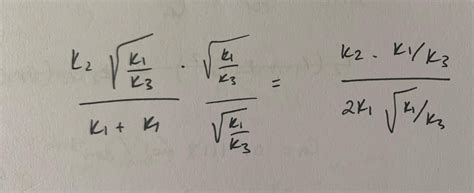 K₂ √(K₁/K₃) / (K₁ + K₁) · √(K₁/K₃) / √(K₁/K₃) = K₂ · K₁/K₃ / (2K₁ √K₁/K₃)